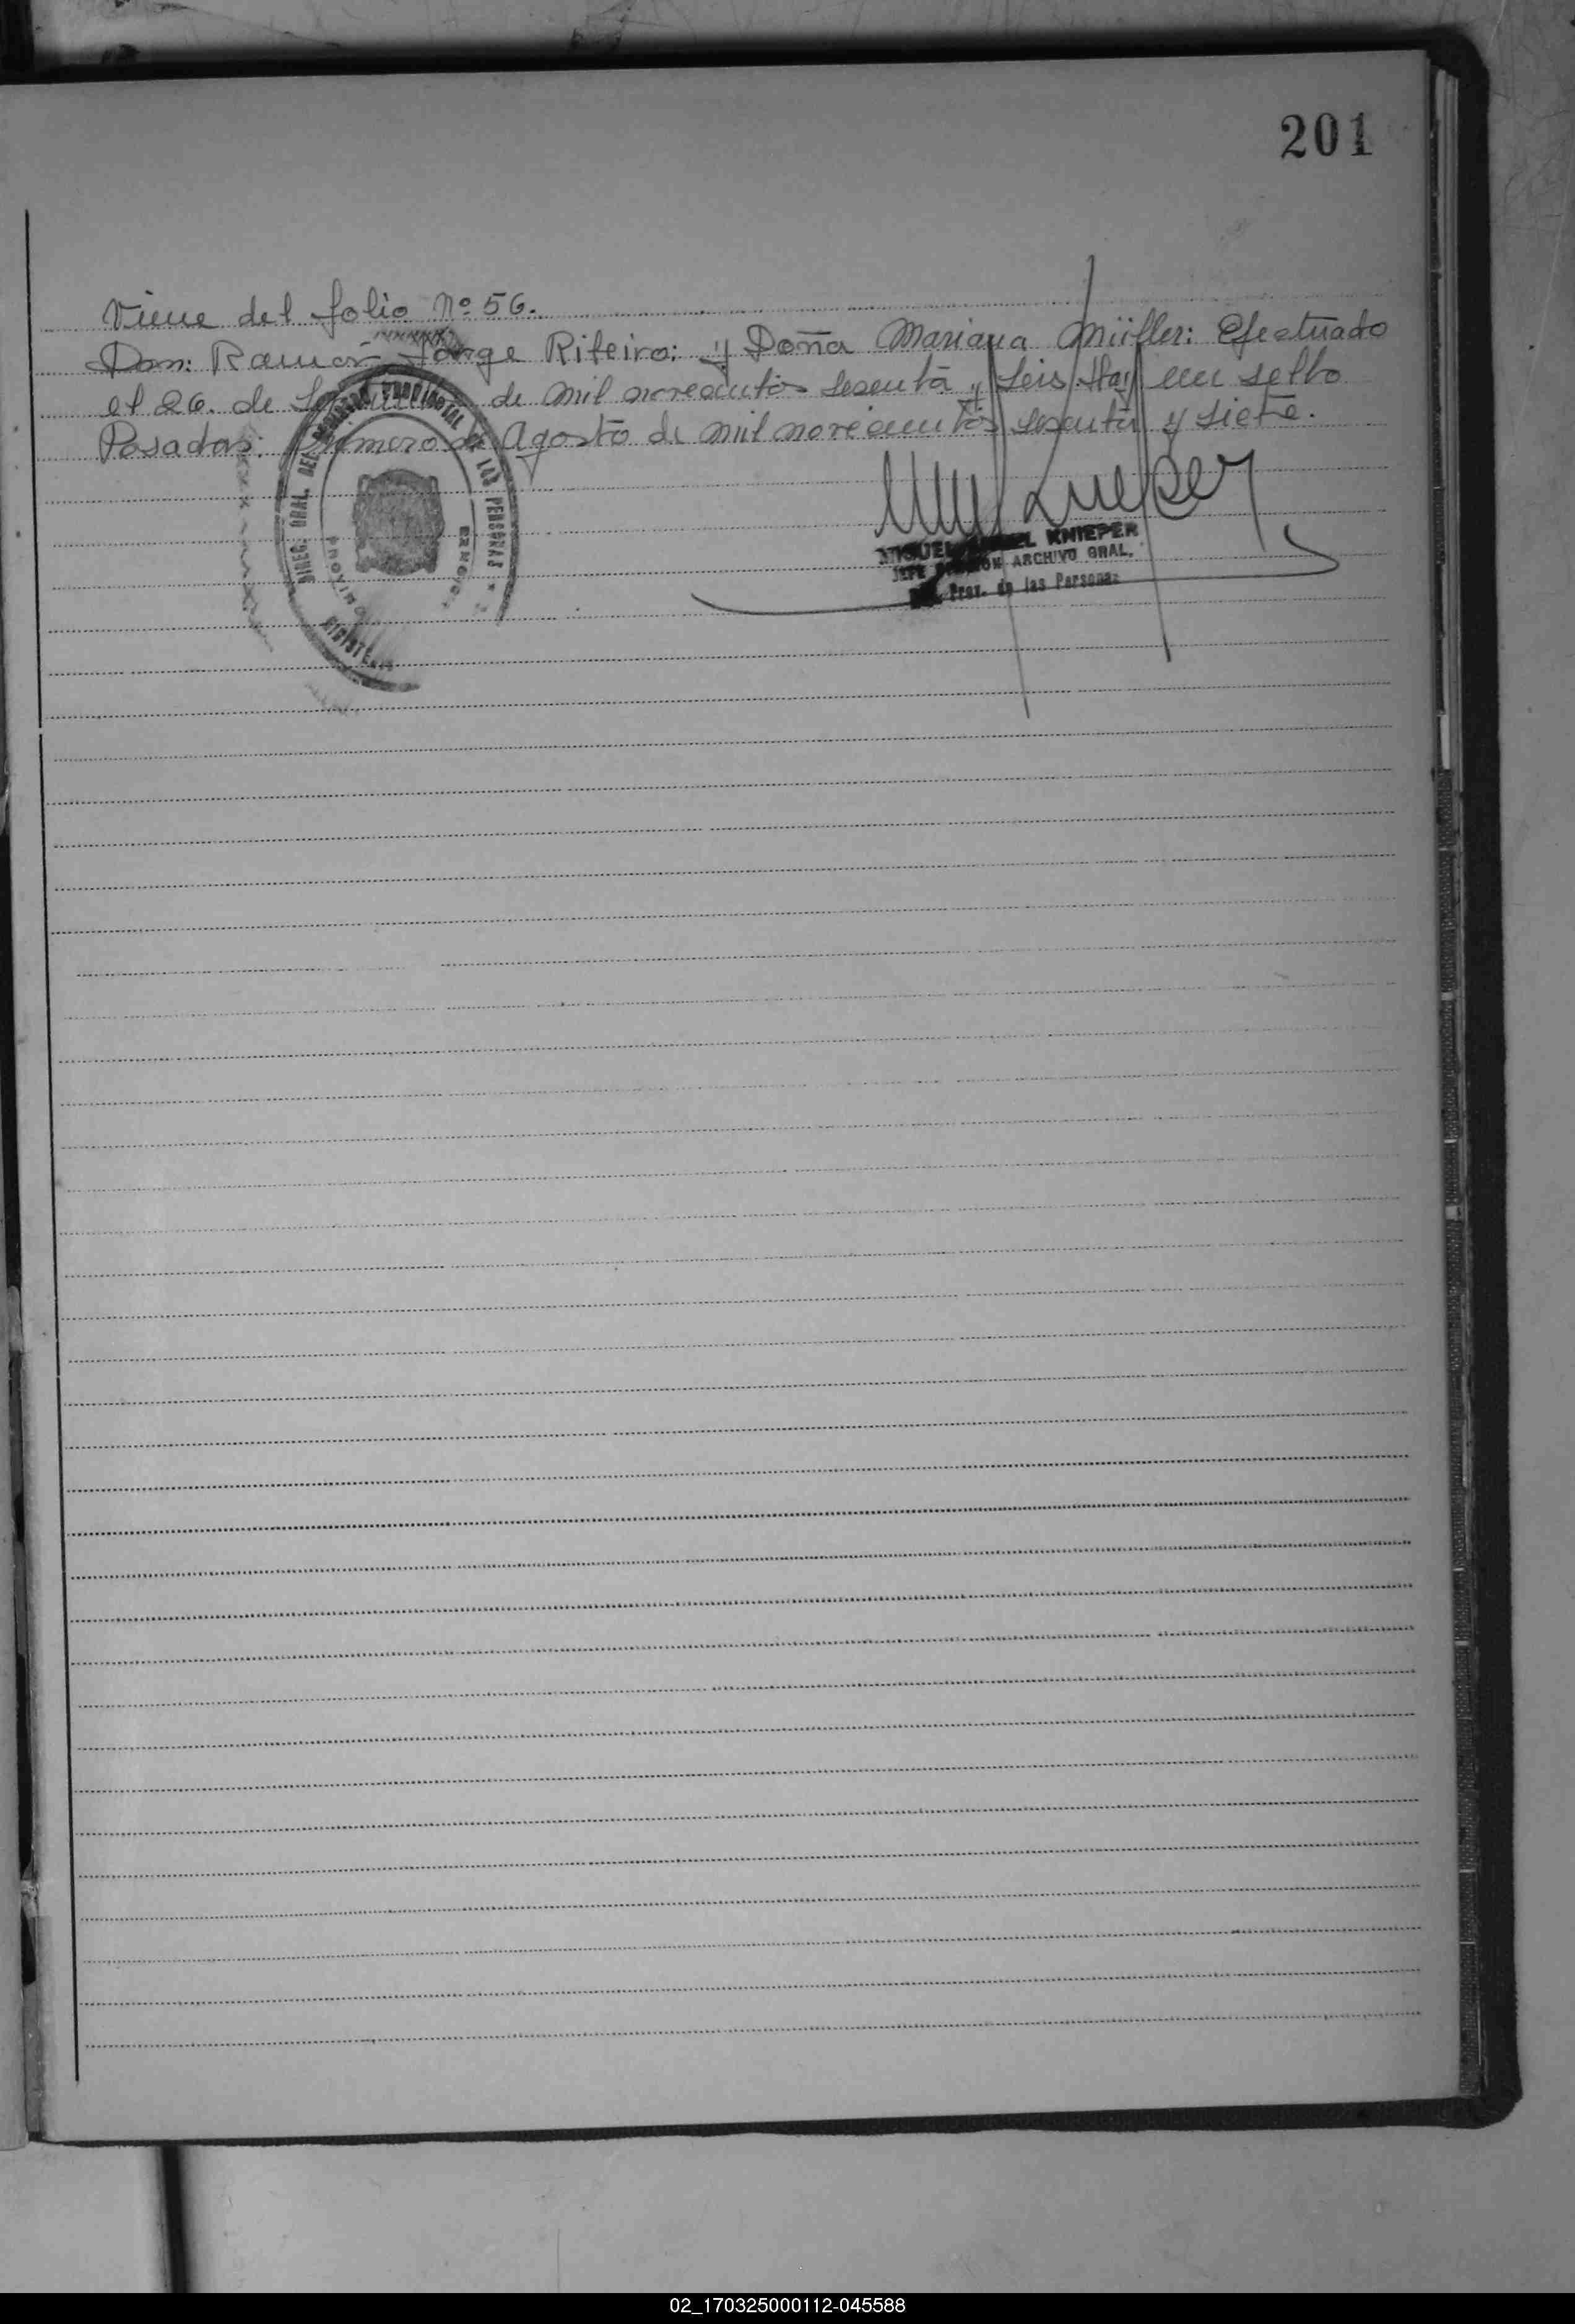 201
Viene del folio Nº 56.
Don: Ramón Jorge Riteiro: y Doña Mariana Müller: Efectuado
el 26. de de mil novecientos sesenta y seis. Hay un sello
Posadas: Primero de Agosto de mil novecientos sesenta y siete.
DIREC. GRAL. DEL REGISTRO PROVINCIAL DE LAS PERSONAS
MINISTERIO
MIGUEL KNIEPER
JEFE ARCHIVO GRAL.
Prov. de las Personas
02_170325000112-045588